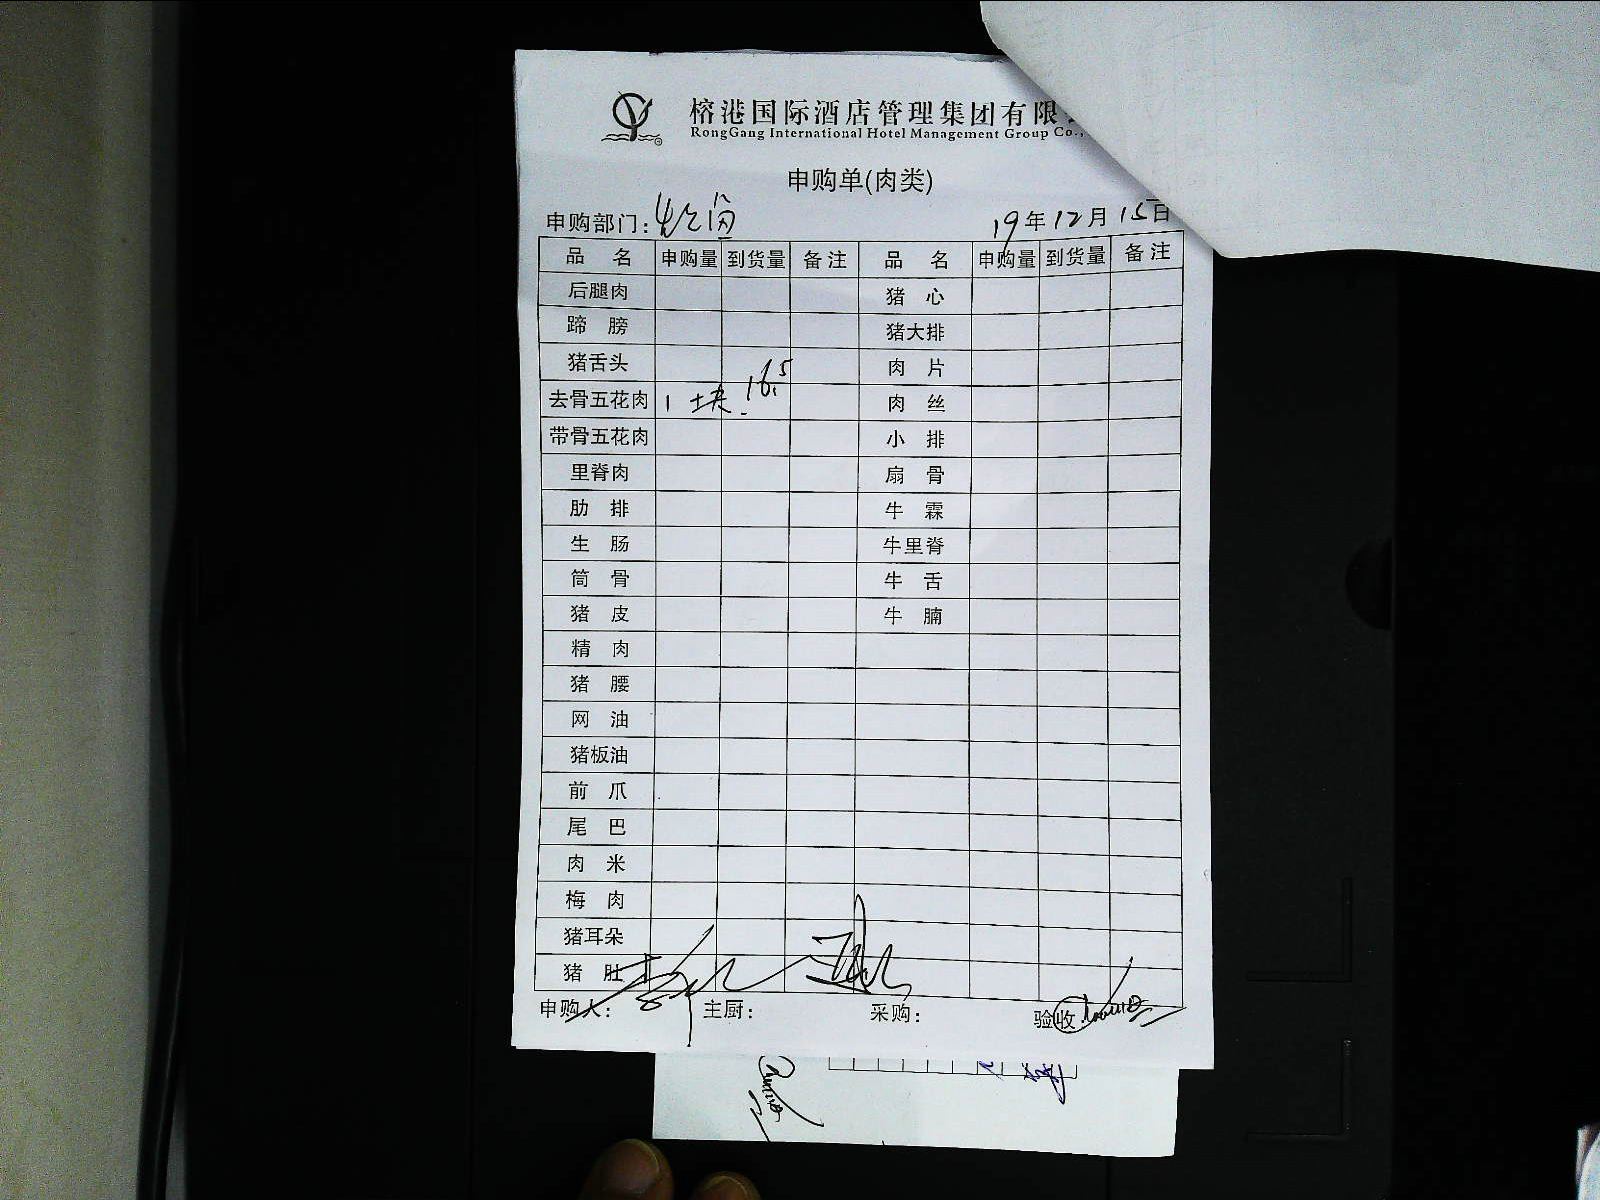 榕港国际酒店管理集团有限
RongGang International Hotel Management Group Co.,
申购单(肉类)
申购部门:
19年12月15日
品名 申购量 到货量 备注 品名 申购量 到货量 备注
后腿肉 猪心
蹄膀 猪大排
猪舌头 肉片
去骨五花肉 1块 16.5 肉丝
带骨五花肉 小排
里脊肉 扇骨
肋排 牛霖
生肠 牛里脊
筒骨 牛舌
猪皮 牛腩
精肉
猪腰
网油
猪板油
前爪
尾巴
肉米
梅肉
猪耳朵
猪肚
申购人: 主厨: 采购: 验收: